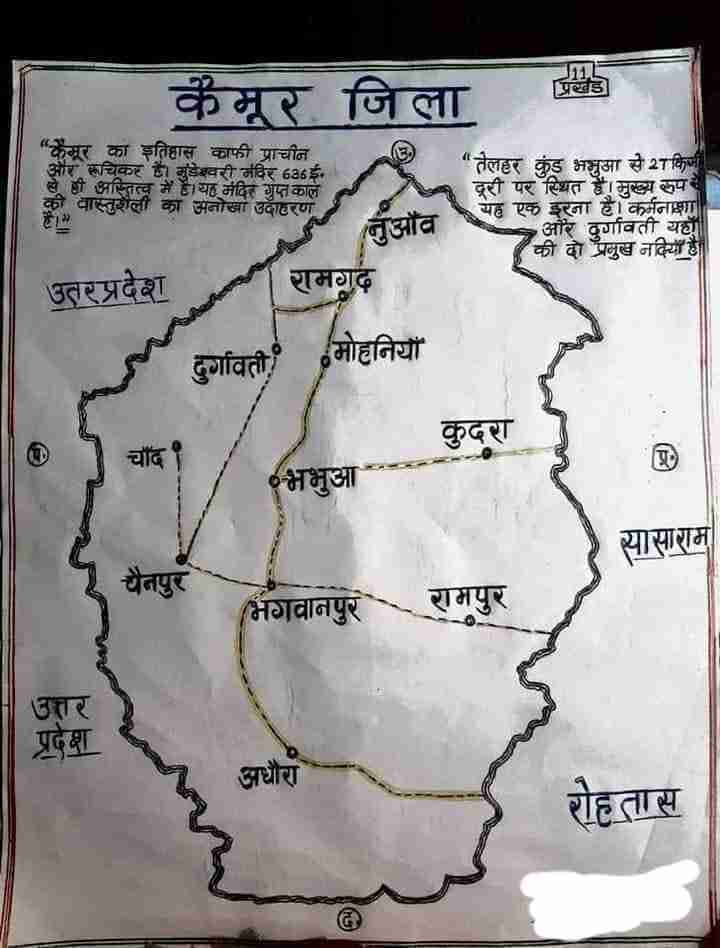 कैमूर जिला
11
प्रखंड
"कैमूर का इतिहास काफी प्राचीन
और रूचिकर है। मुंडेश्वरी मंदिर 636 ई.
से ही अस्तित्व में है। यह मंदिर गुप्त काल
की वास्तुशैली का अनोखा उदाहरण
है।"
उ.
"तेलहर कुंड भभुआ से 27 किमी
दूरी पर स्थित है। मुख्य रूप से
यह एक झरना है। कर्मनाशा
और दुर्गावती यहाँ
की दो प्रमुख नदियाँ है
नुआँव
उतरप्रदेश
रामगढ़
दुर्गावती
मोहनियाँ
कुदरा
प.
चाँद
प्र.
भभुआ
सासाराम
चैनपुर
भगवानपुर
रामपुर
उत्तर
प्रदेश
अधौरा
रोहतास
द.